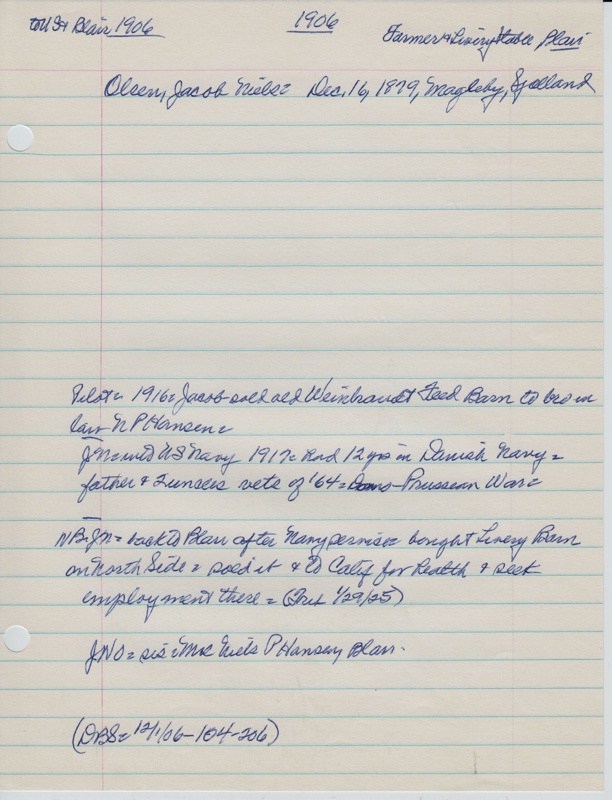 to US & Blair 1906 1906 Farmer & Livery Stable Blair
Olsen, Jacob Niels= Dec. 16, 1879, Magleby, Sjolland
Pilot= 1916= Jacob sold old Weinbrandt Feed Barn to bro in
law N P Hansen=
JN= into US Navy 1917= had 12 yrs in Danish Navy=
father & 2 uncles vets of '64= Dano-Prussian War=
NB= JN= back to Blair after Navy service= bought Livery Barn
on North Side= sold it & to Calif for health & seek
employment there= (Trib 1/29/25)
JNO= sis= Mrs Niels P Hansen, Blair.
(DBS= 12/1/06-104-206)